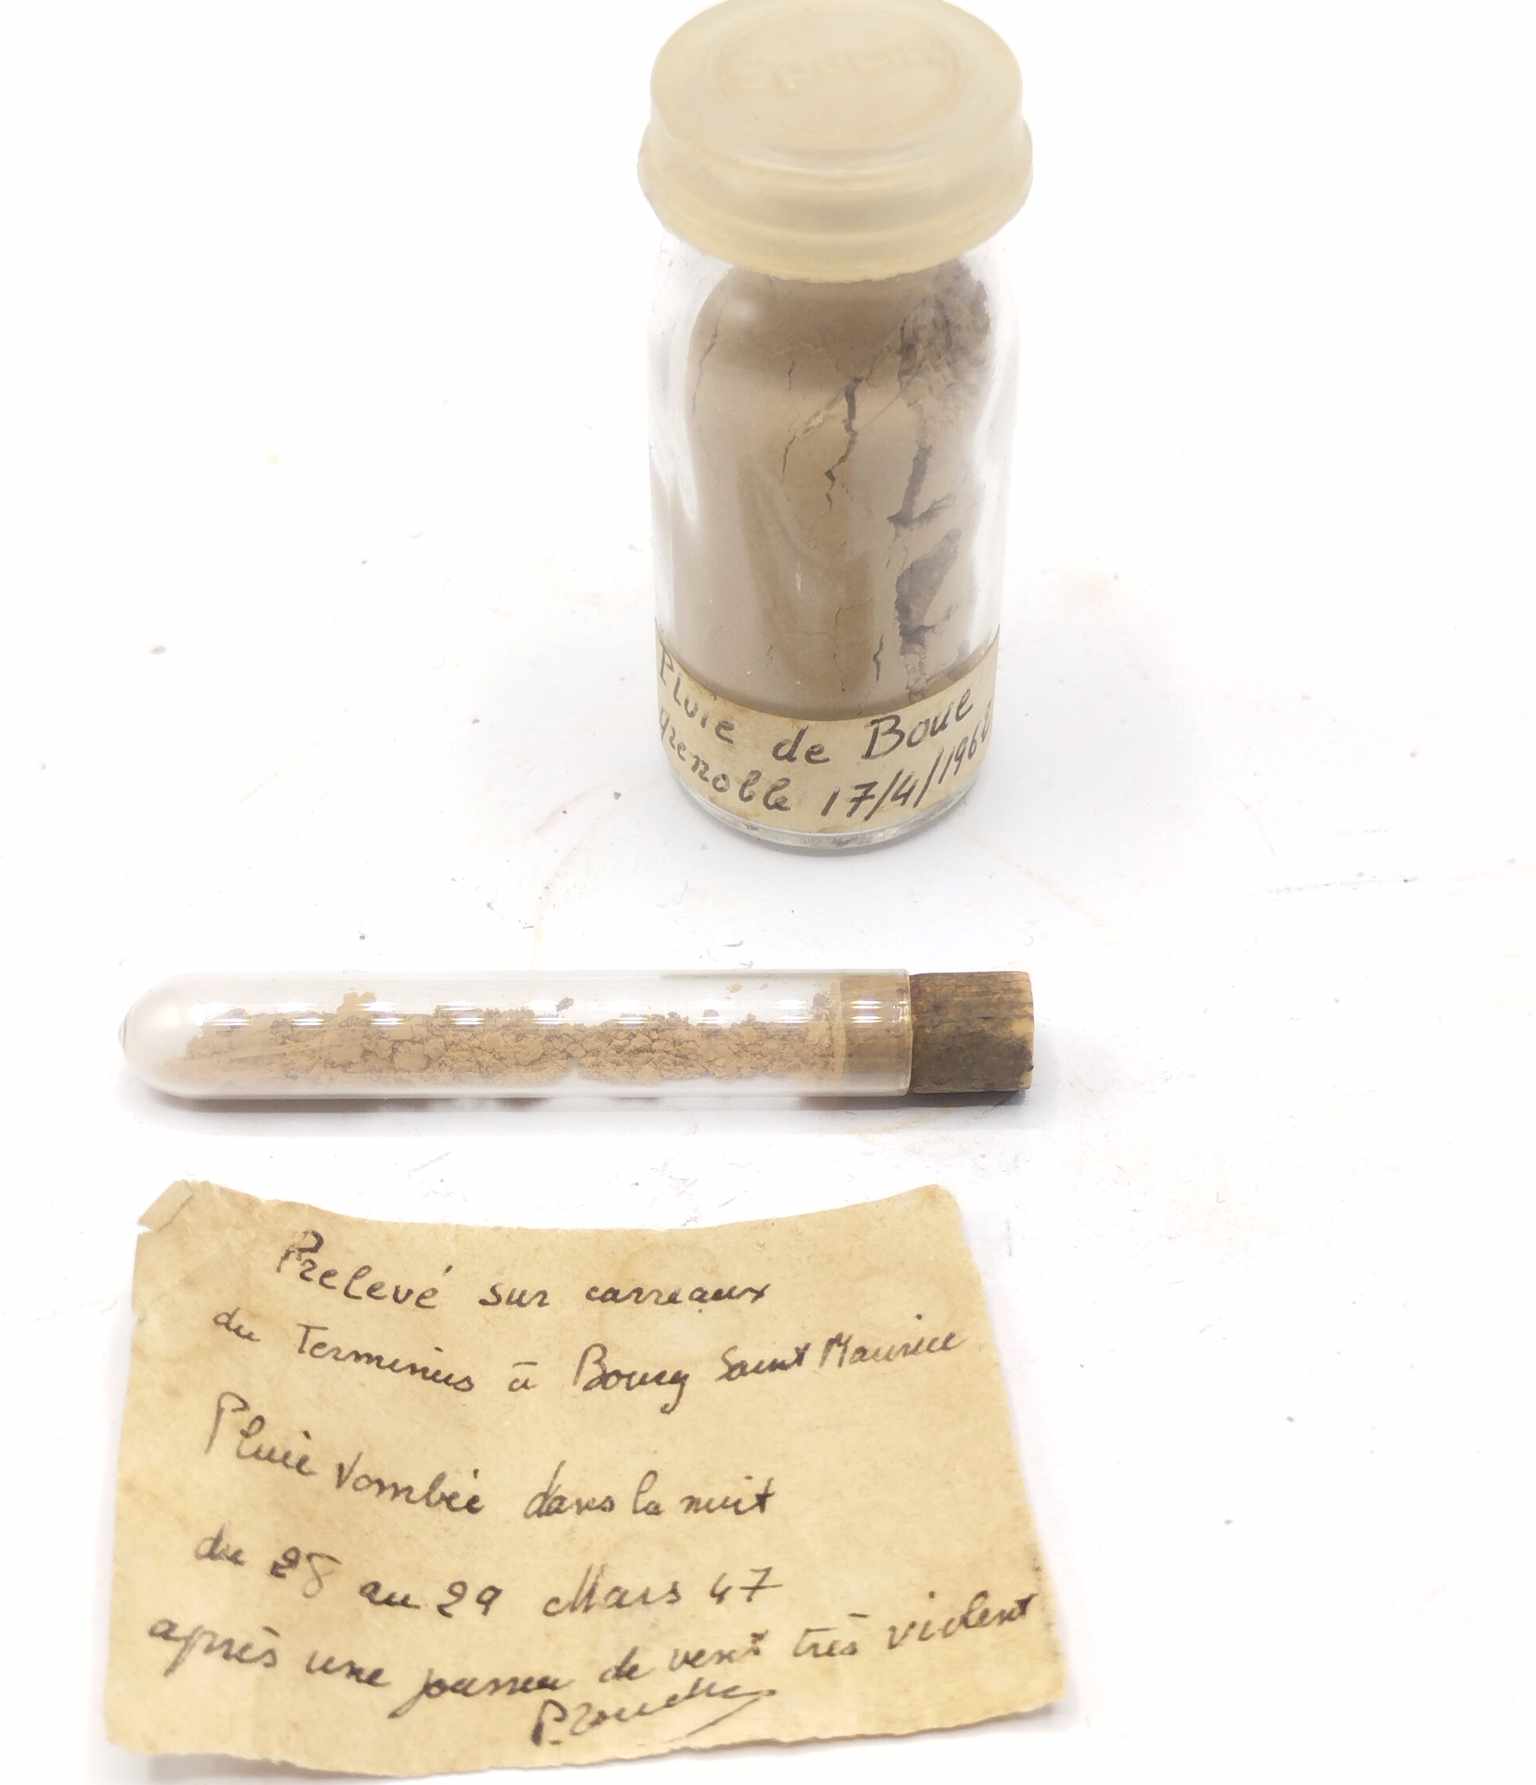 Pluie de Boue
Grenoble 17/4/196
Prelevé sur carreaux
du Terminus à Bourg Saint Maurice
Pluie tombée dans la nuit
du 28 au 29 Mars 47
après une journée de vent très violent